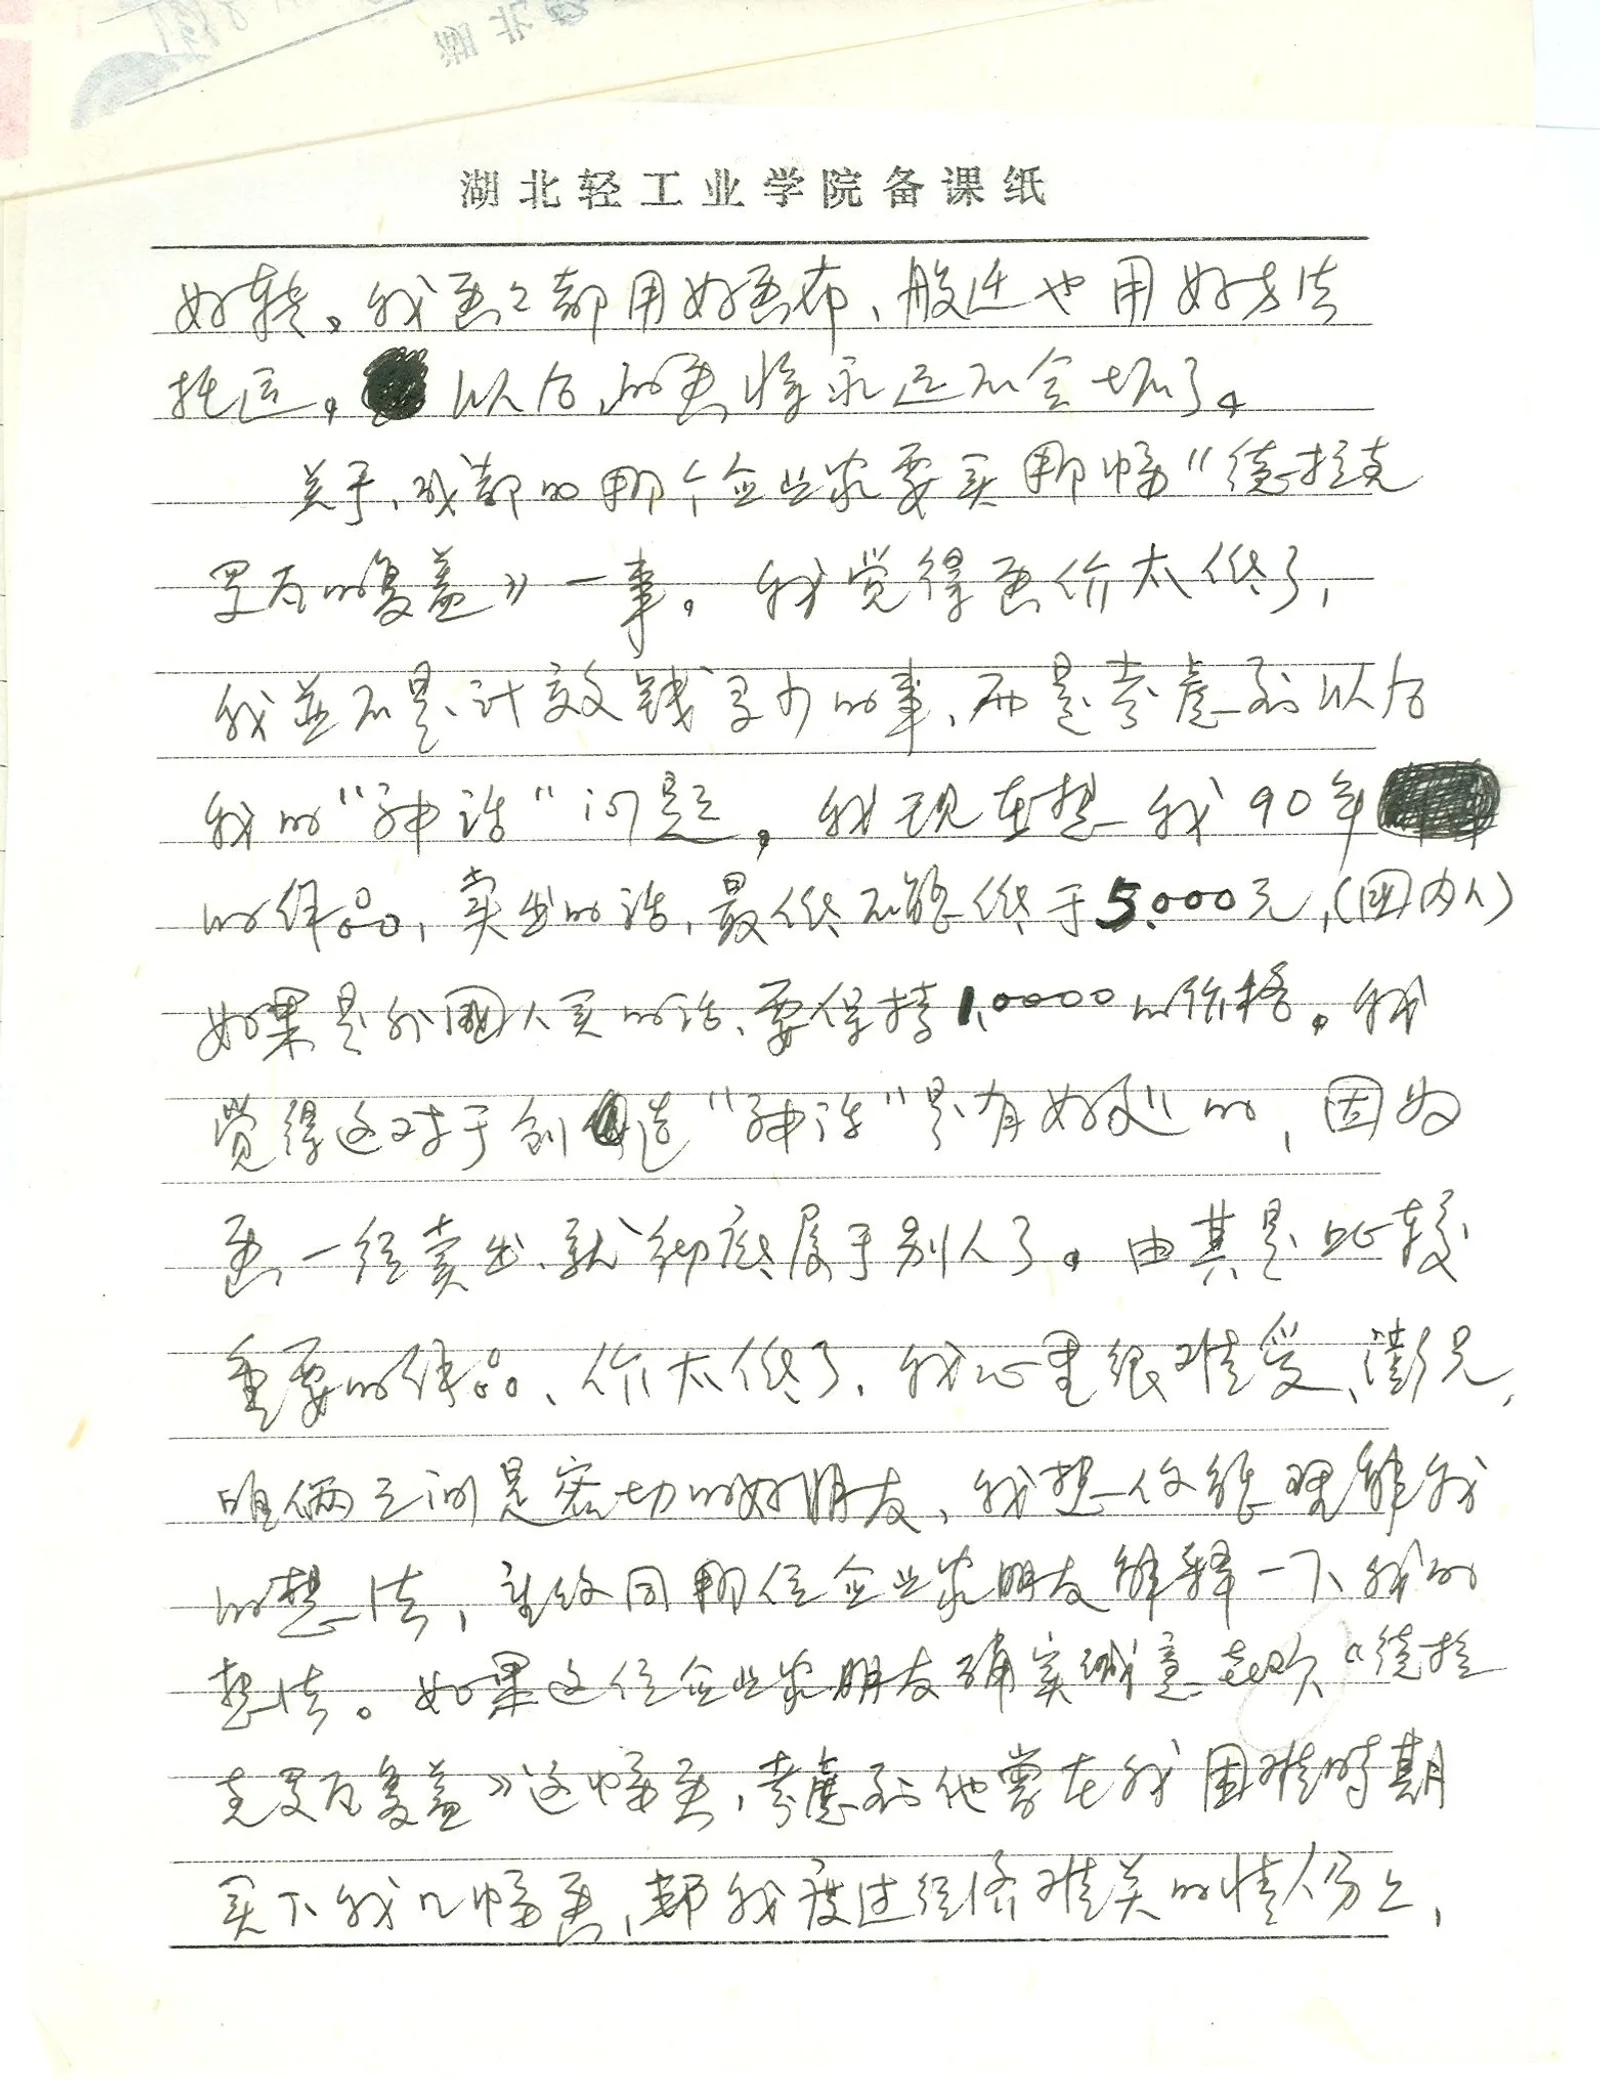 湖北轻工业学院备课纸
好转。我画々都用好画布、般迁也用好方法
托运。以后的画将永远不会坏了。
关于、成都的那个企业家要买那幅“德拉克
罗瓦的复盖》一事。我觉得画价太低了，
我並不是计较钱多少的事、而是考虑到以后
我的“神话”问题。我现在想我90年
的作品，卖出的话，最低不能低于5.000元，（国内人）
如果是外国人买的话、要保持1.0000的价格。我
觉得这对于创造“神话”是有好处的，因为
画一经卖出、就彻底属于别人了。由其是比较
重要的作品、价太低了、我心里很难受、澎兄，
咱俩之间是密切的好朋友、我想你能理解我
的想法，並给同那位企业家朋友解释一下我的
想法。如果这位企业家朋友确实诚意喜欢“德拉
克罗瓦复盖》这幅画，考虑到他曾在我困难时期
买下我几幅画，帮我度过经济难关的情人份上，